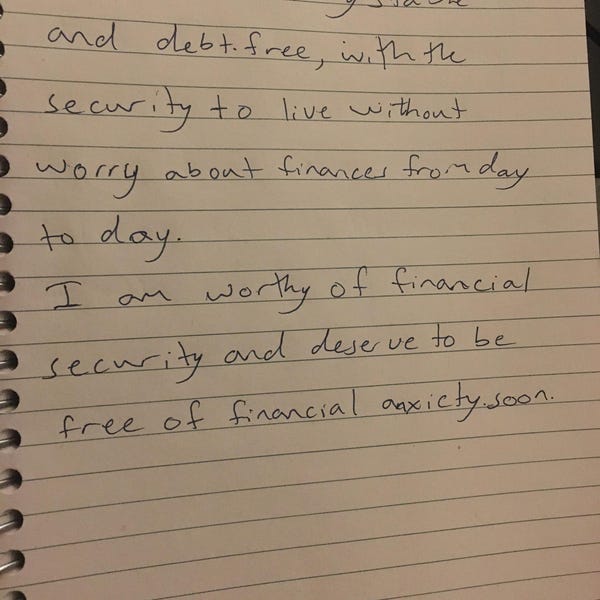 and debt.free, with the
security to live without
worry about finances from day
to day.
I am worthy of financial
security and deserve to be
free of financial anxiety.soon.